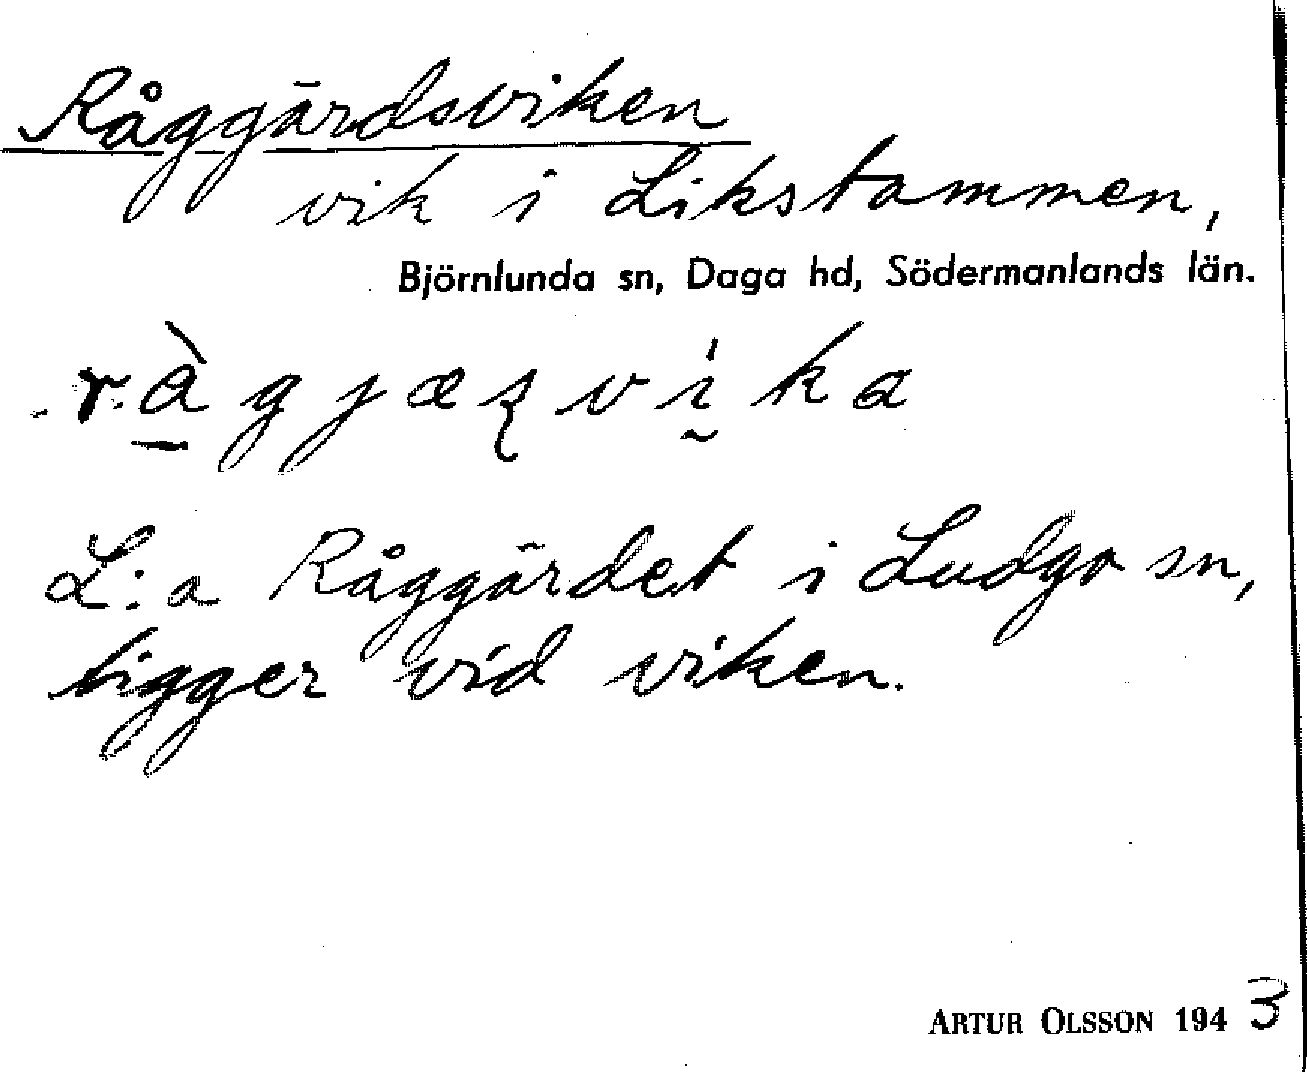 Råggärdsviken
vik i Likstammen,
Björnlunda sn, Daga hd, Södermanlands län.
L:a Råggärdet i Ludgo sn,
ligger vid viken.
ARTUR OLSSON 1943